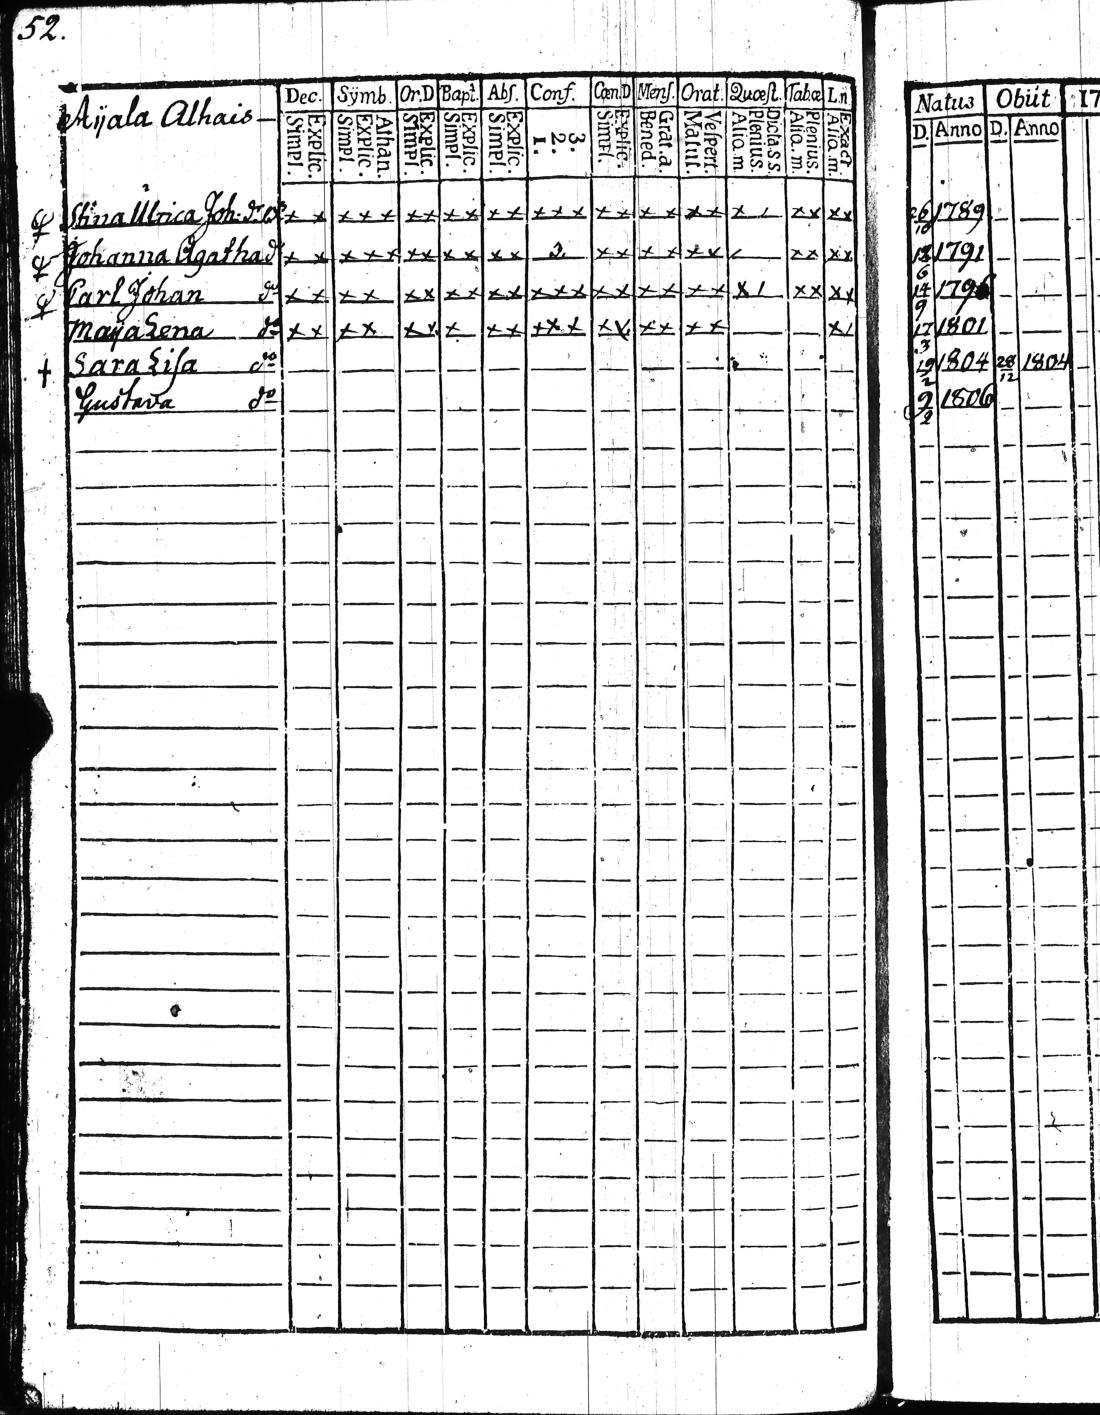 52.
Aÿala Alhais
Dec. Sÿmb. Or.D Bapt. Abs. Conf. Cœn.D Mens. Orat. Quæst. Tab.æ L.n
Simpl. Explic. Simpl. Explic. Athan. Simpl. Explic. Simpl. Explic. Simpl. Explic. 1. 2. 3. Simpl. Explic. Bened. Grat. a. Matut. Vespert. Aliq. m. Plenius. Dicta s.s. Aliq. m. Plenius. Aliq. m. Exact
Natus Obiit 17
D. Anno D. Anno
Stina Ulrica Joh. dr x x x x x x x x x x x x x x x x x x x x x x x x x 26/10 1789
Johanna Agatha dr x x x x x x x x x x x 3. x x x x x x x x x x 18/6 1791
Carl Johan x x x x x x x x x x x x x x x x x x x x x x x x 14/9 1796
Maÿa Lena do x x x x x x x x x x x x x x x x x x x 17/3 1801
† Sara Lisa do 19/2 1804 28/12 1804
Gustava do 9/2 1806